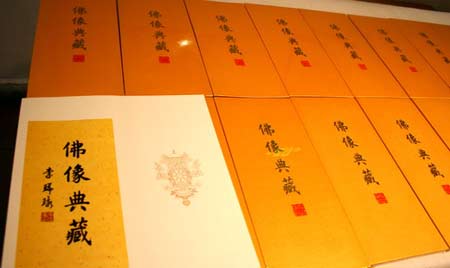 佛像典藏
佛像典藏
佛像典藏
佛像典藏
佛像典藏
佛像典藏
佛像典藏
佛像典藏
佛像典藏
佛像典藏
佛像典藏